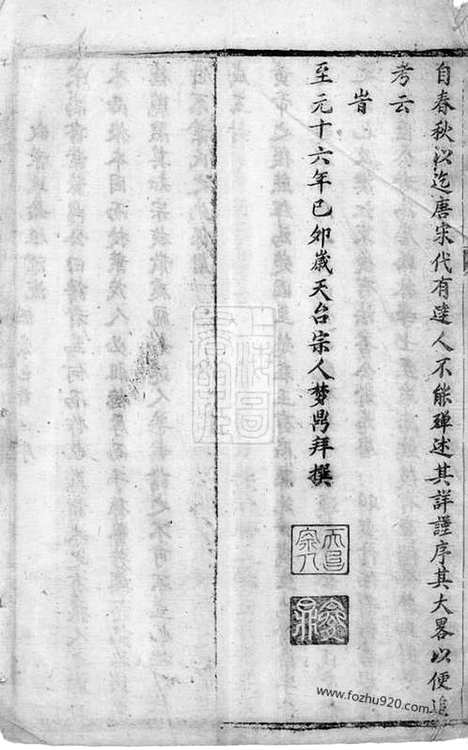 自春秋以迄唐宋代有達人不能殫述其詳謹序其大畧以便追
考云
旹
至元十六年己卯歲天台宗人夢鼎拜撰
天台
宗人
夢
鼎
www.fozhu920.com